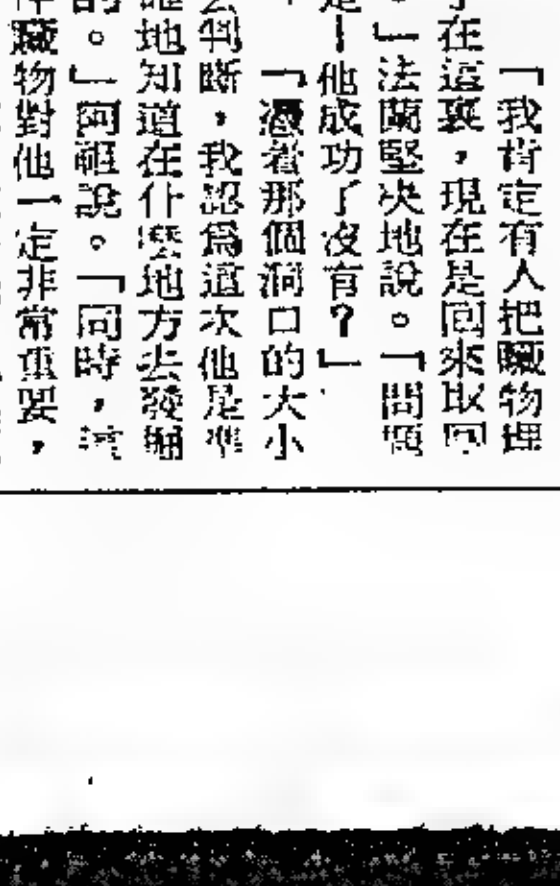 「我肯定有人把贓物埋
在這裏，現在是回來取回
。」法蘭堅决地說。「問題
是—他成功了沒有？」
「憑着那個洞口的大小
去判斷，我認爲這次他是準
確地知道在什麼地方去發掘
的。」阿祖說。「同時，這
件贓物對他一定非常重要，